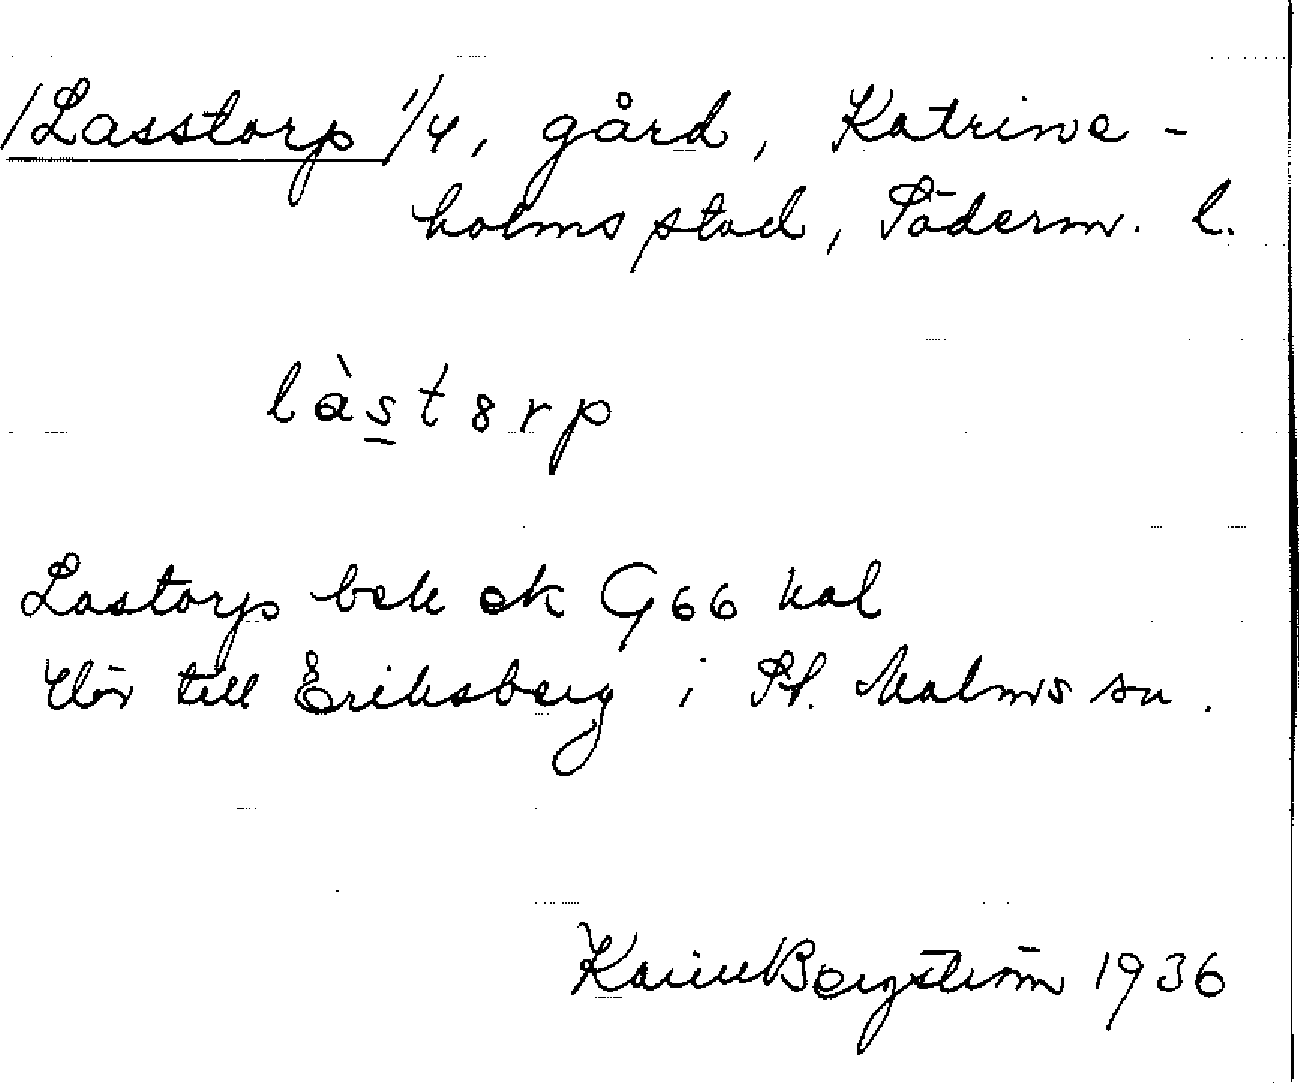 /Lasstorp 1/4, gård, Katrine-
holms stad, Söderm. l.
làs̲t8rp
Lastorp bek ek G66 kal
Hör till Eriksberg i St. Malms sn.
Karin Bergström 1936